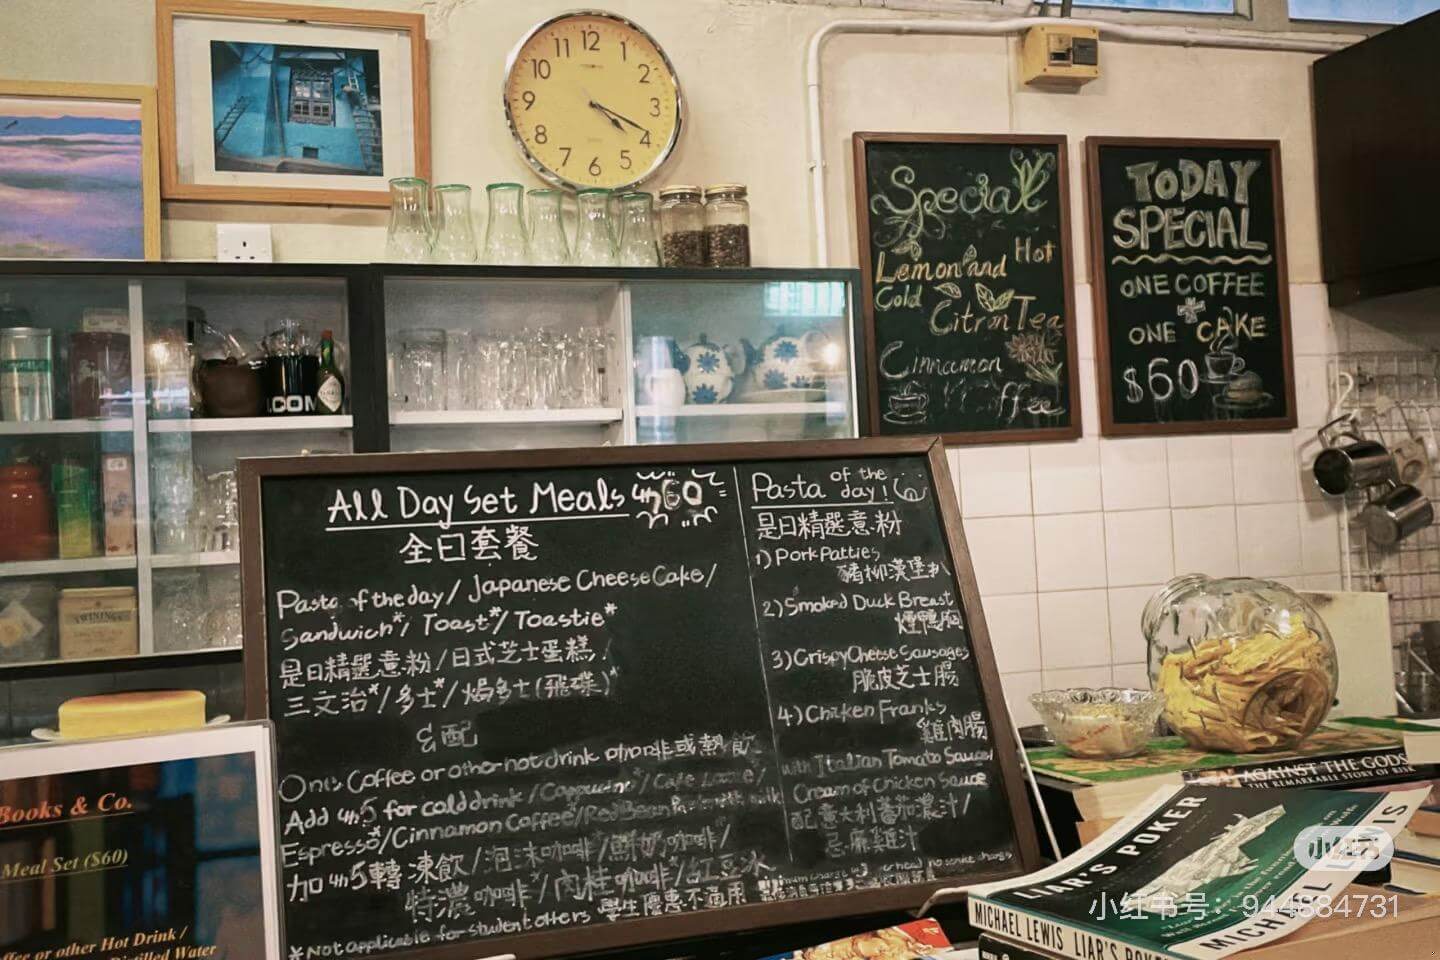 12
1
2
3
4
5
6
7
8
9
10
11
Special
Lemon and Hot
Cold
Citron Tea
Cinnamon
Coffee
TODAY
SPECIAL
ONE COFFEE
+
ONE CAKE
$60
.COM
TWININGS
All Day Set Meals 60
全日套餐
Pasta of the day / Japanese Cheese Cake /
Sandwich* / Toast* / Toastie*
是日精選意粉 / 日式芝士蛋糕 /
三文治* / 多士* / 焗多士(飛碟)*
& 配
One Coffee or other hot drink 咖啡或熱飲
Add 5 for cold drink / Cappuccino* / Cafe Latte /
Espresso* / Cinnamon Coffee / Red Bean with milk
加 5 轉 凍飲 / 泡沫咖啡 / 鮮奶咖啡 /
特濃咖啡* / 肉桂咖啡 / 紅豆冰
*Not applicable for student offers 學生優惠不適用
Pasta of the day!
是日精選意粉
1) Pork Patties
豬柳漢堡扒
2) Smoked Duck Breast
煙鴨胸
3) Crispy Cheese Sausages
脆皮芝士腸
4) Chicken Franks
雞肉腸
with Italian Tomato Sauce/
Cream of Chicken Sauce
配意大利蕃茄濃汁/
忌廉雞汁
no service charge
Books & Co.
Meal Set ($60)
or other Hot Drink /
Distilled Water
AGAINST THE GODS
THE REMARKABLE STORY OF RISK
LIAR'S POKER
MICHAEL LEWIS
MICHAEL LEWIS LIAR'S POKER
小红书
小红书号：944884731